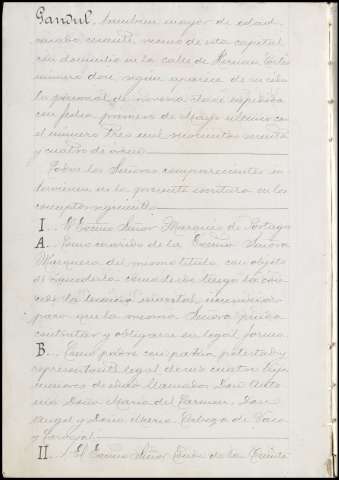 Gandul, tambien mayor de edad,
casado, cesante, vecino de esta capital
con domicilio en la calle de Hernan Cortés
numero doce, segun aparece de su cédu
la personal de novena clase expedida
con fecha primero de Mayo ultimo con
el numero tres mil novecientos veinte
y cuatro de orden.
Todos los Señores comparecientes in-
tervienen en la presente escritura en los
conceptos siguientes.
I... El Excmo Señor Marqués de Portago
A... Como marido de la Excma Señora
Marquesa del mismo titulo con objeto
de concederla como desde luego la con-
cede la licencia marital necesaria
para que la misma Señora pueda
contratar y obligarse en legal forma.
B... Como padre con patria potestad y
representante legal de sus cuatro hijos
menores de edad llamados Don Anto
nio Doña Maria del Carmen, Don
Angel y Doña Maria Cabeza de Vaca
y Carvajal.
II... El Excmo Señor Conde de la